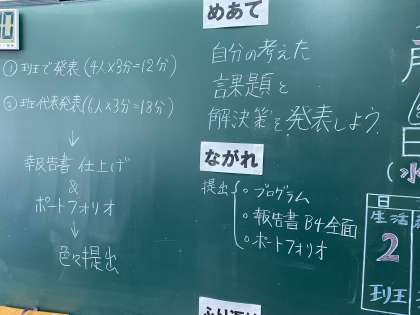 めあて
自分の考えた
課題と
解決策を発表しよう
①班で発表(4人×3分=12分)
②班代表発表(6人×3分=18分)
↓
報告書 仕上げ
&
ポートフォリオ
↓
色々提出
ながれ
提出
○プログラム
○報告書 B4全面
○ポートフォリオ
日
生活
2
班
(水